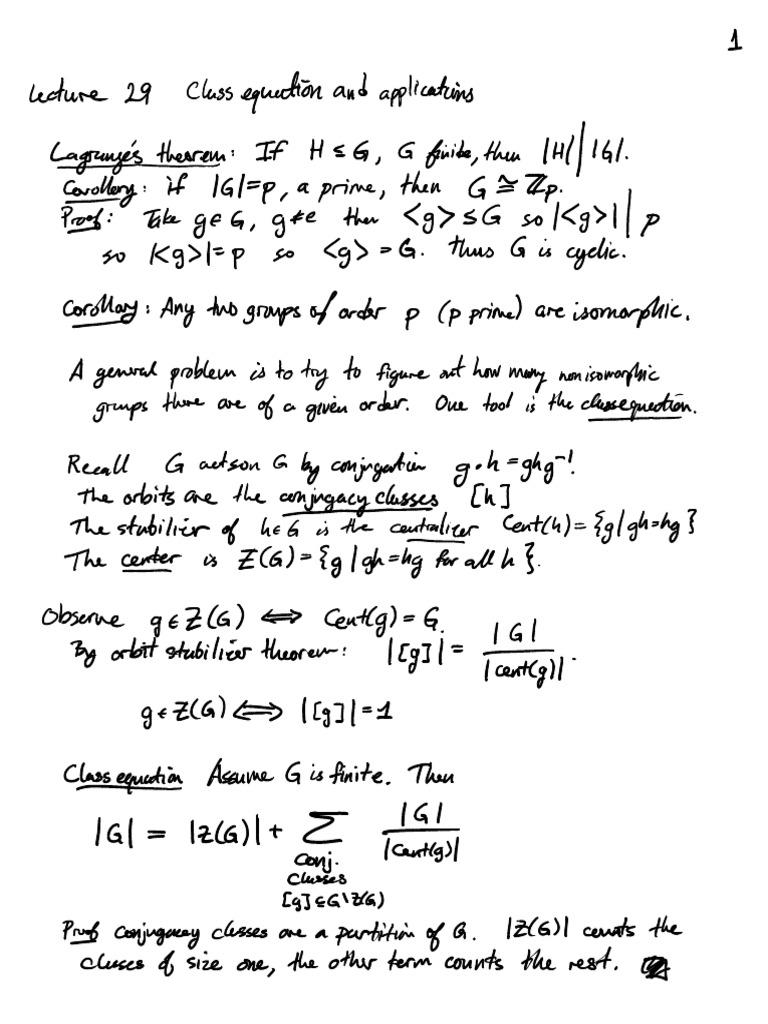 1
Lecture 29 Class equation and applications
Lagrange's theorem: If H ≤ G, G finite, then |H| | |G|.
Corollary: if |G|=p, a prime, then G ≅ ℤp.
Proof: Take g∈G, g≠e then <g> ≤ G so |<g>| | p
so |<g>|=p so <g> = G. Thus G is cyclic.
Corollary: Any two groups of order p (p prime) are isomorphic.
A general problem is to try to figure out how many nonisomorphic
groups there are of a given order. One tool is the class equation.
Recall G acts on G by conjugation g·h = ghg⁻¹.
The orbits are the conjugacy classes [h]
The stabilizer of h∈G is the centralizer Cent(h) = {g | gh=hg}
The center is Z(G) = {g | gh=hg for all h}.
Observe g∈Z(G) ⟺ Cent(g) = G.
By orbit stabilizer theorem: |[g]| = |G| / |Cent(g)|.
g∈Z(G) ⟺ |[g]| = 1
Class equation Assume G is finite. Then
|G| = |Z(G)| + Σ |G| / |Cent(g)|
Conj.
Classes
[g]⊆G\Z(G)
Proof Conjugacy classes are a partition of G. |Z(G)| counts the
classes of size one, the other term counts the rest.